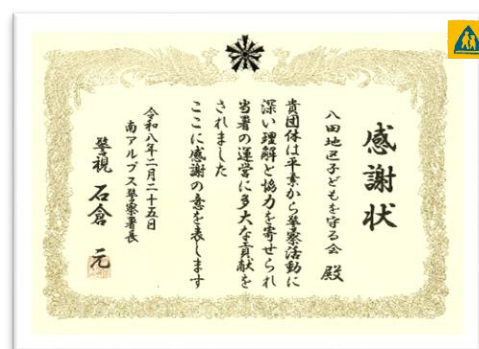 感謝状
八田地区子どもを守る会 殿
貴団体は平素から警察活動に
深い理解と協力を寄せられ
当署の運営に多大な貢献を
されました
ここに感謝の意を表します
令和八年二月二十五日
南アルプス警察署長
警視 石倉 元